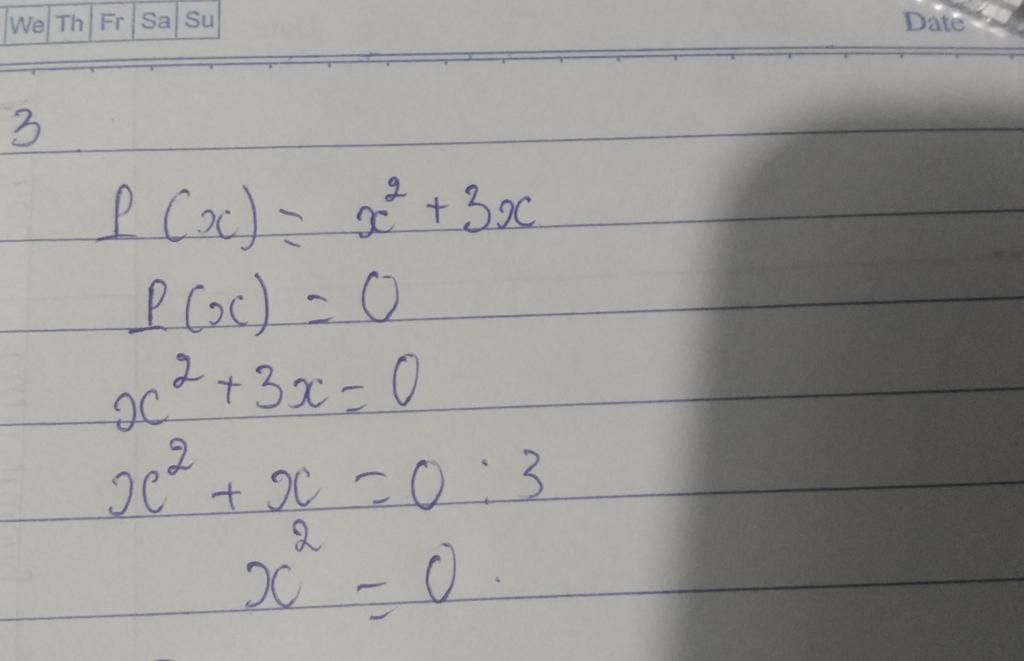 We Th Fr Sa Su Date
3
P(x) = x² + 3x
P(x) = 0
x² + 3x = 0
x² + x = 0 : 3
x² = 0.